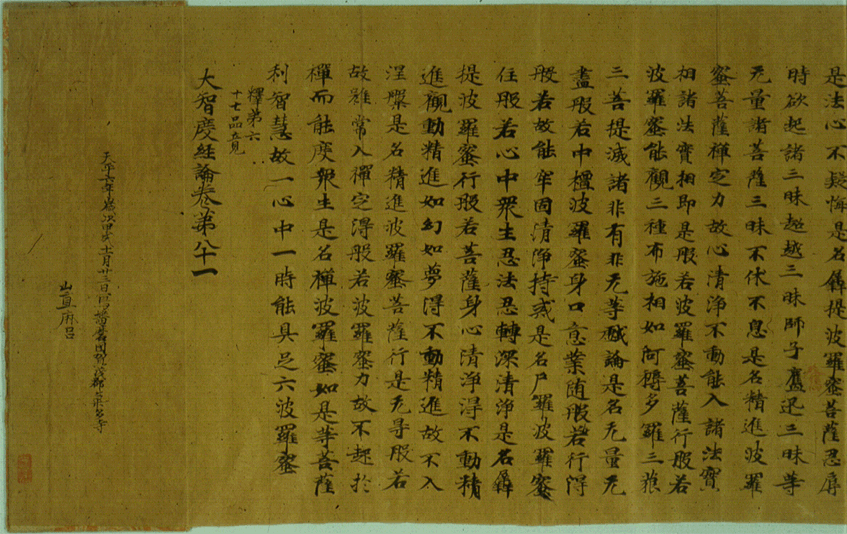 是法心不疑悔是名羼提波羅蜜菩薩忍辱
時欲起諸三昧超越三昧師子奮迅三昧等
无量諸菩薩三昧不休不息是名精進波羅
蜜菩薩禪定力故心清淨不動能入諸法實
相諸法實相即是般若波羅蜜菩薩行般若
波羅蜜能觀三種布施相如阿耨多羅三藐
三菩提滅諸非有非无等戲論是名无量无
盡般若中檀波羅蜜身口意業随般若行得
般若故能牢固清淨持戒是名尸羅波羅蜜
住般若心中衆生忍法忍轉深清淨是名羼
提波羅蜜行般若菩薩身心清淨得不動精
進觀動精進如幻如夢得不動精進故不入
涅槃是名精進波羅蜜菩薩行是无㝵般若
故雖常入禪定得般若波羅蜜力故不起於
禪而能度衆生是名禪波羅蜜如是等菩薩
利智慧故一心中一時能具足六波羅蜜
釋第六
十七品竟
大智度経論卷第八十一
天平六年歳次甲戌十一月廿三日寫播磨國賀茂郡
山直麻呂